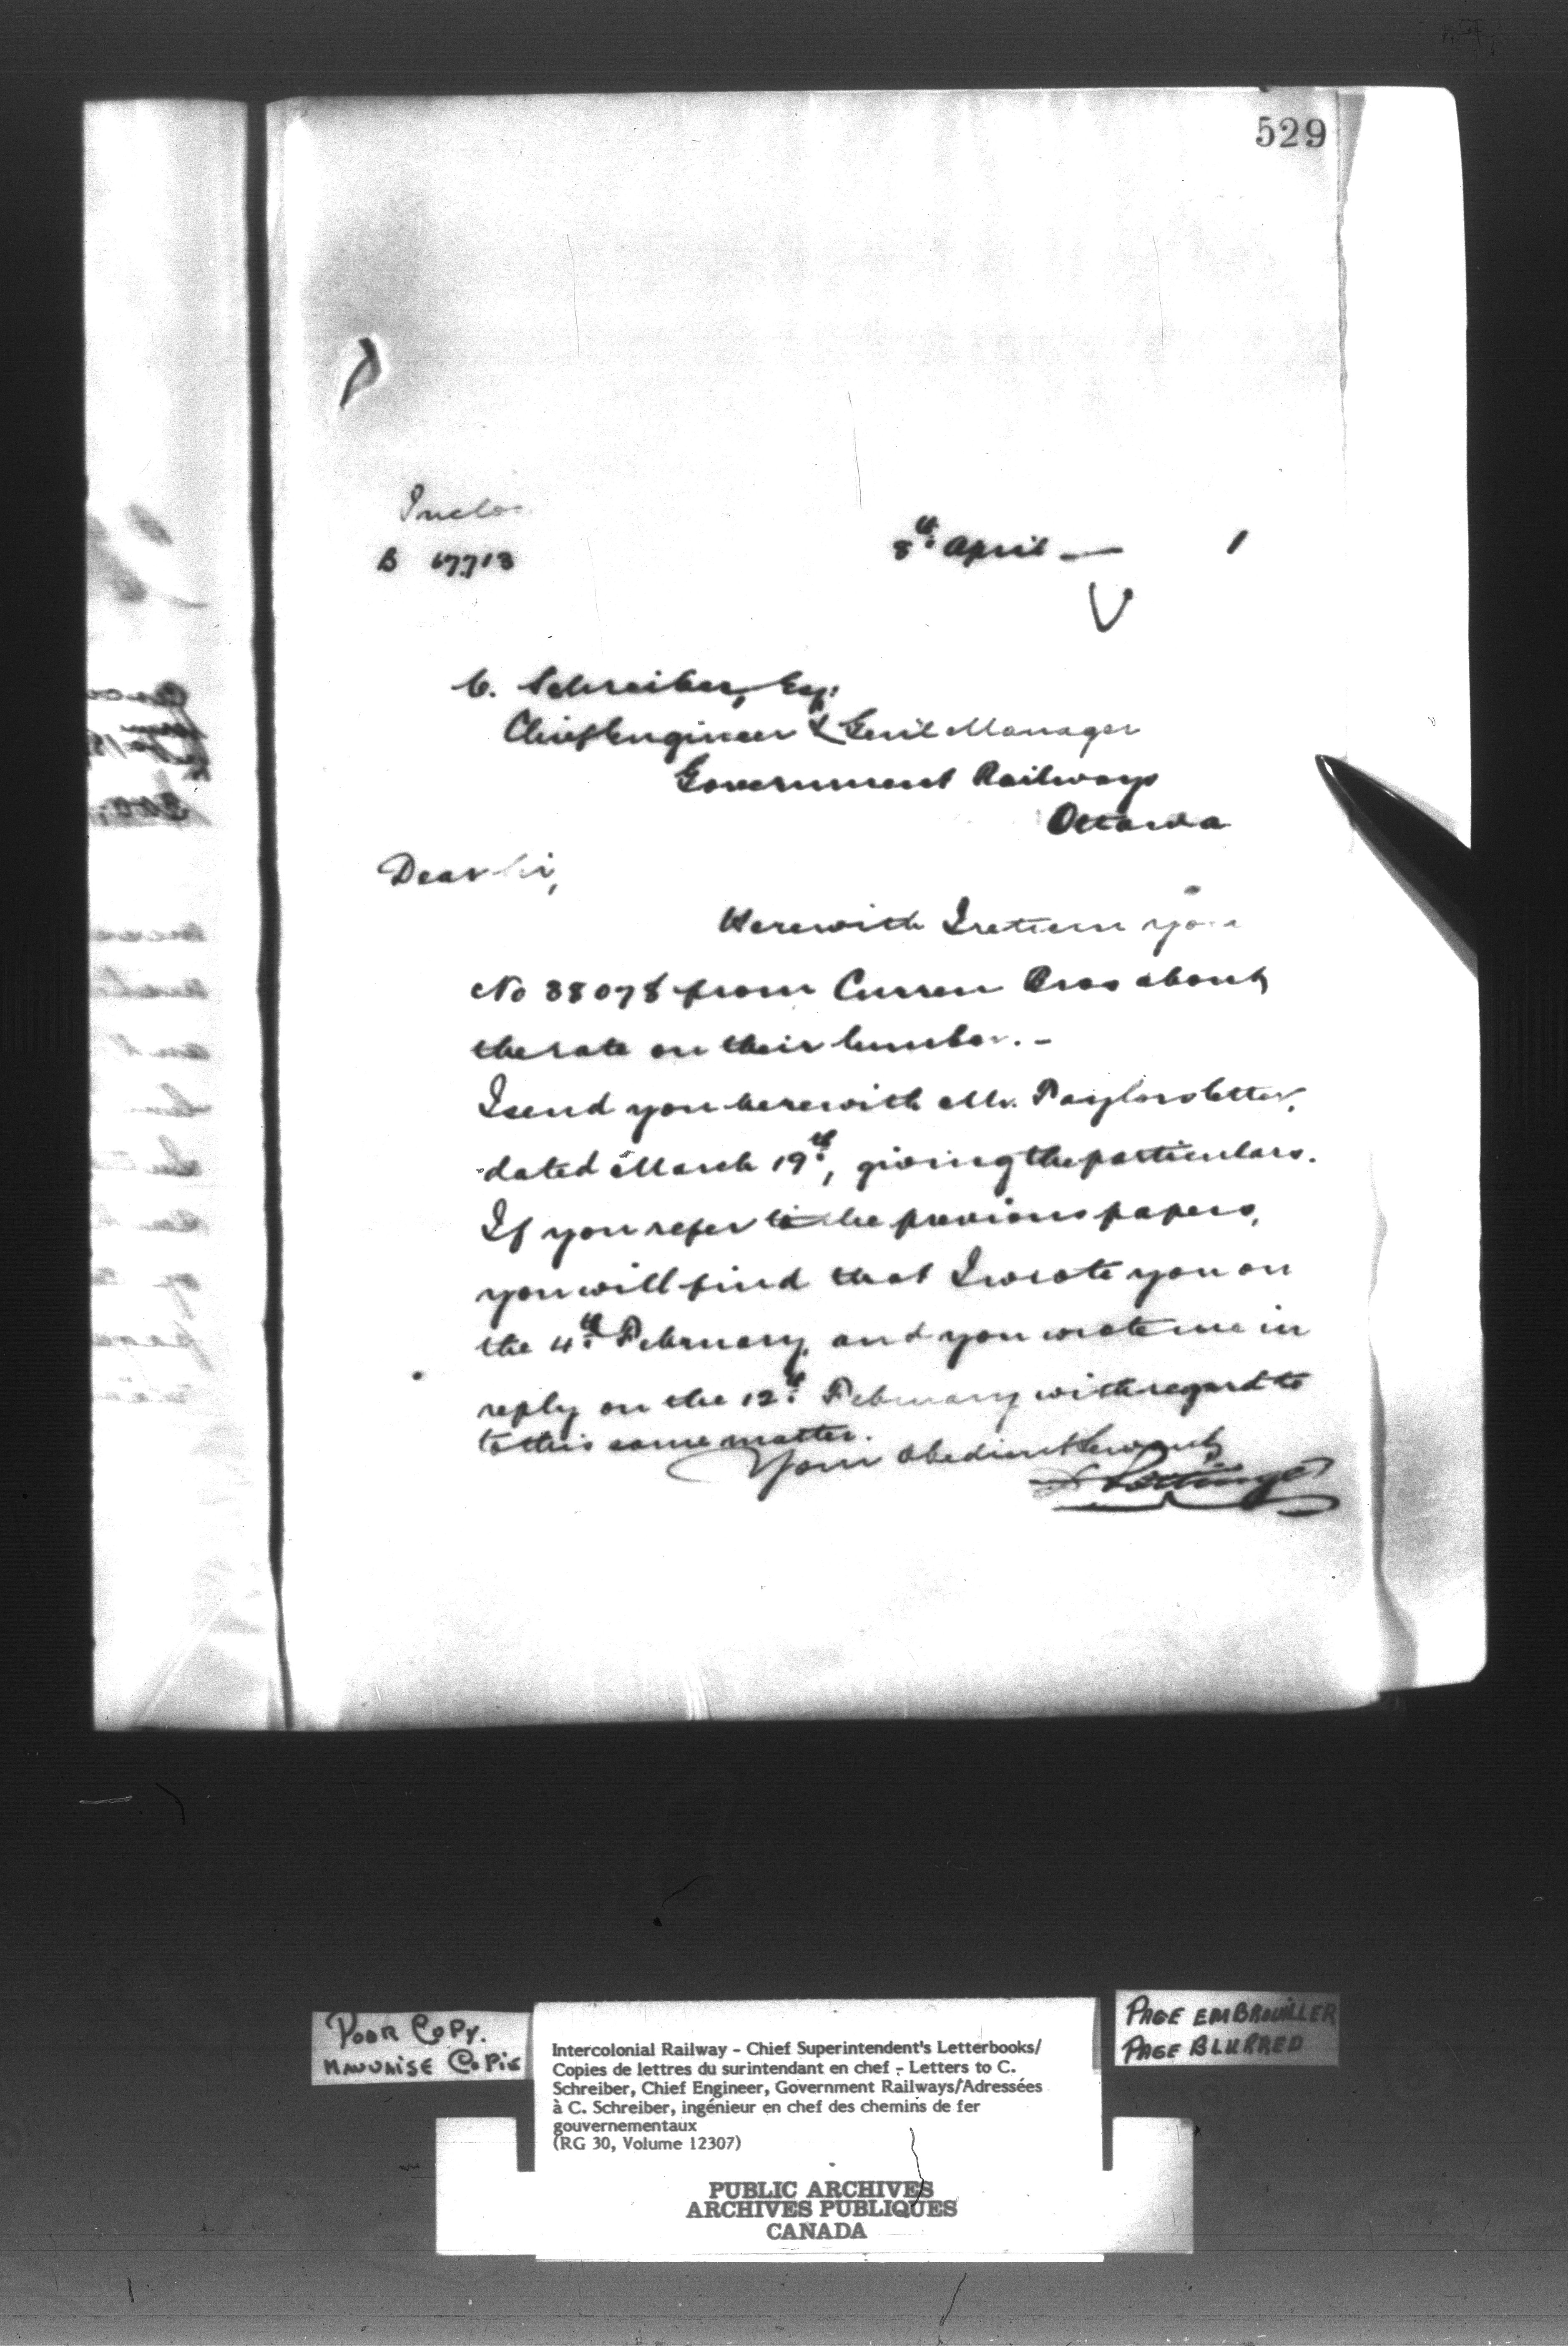 529
Inclo
B 67713
8th April — 1
C. Schreiber, Esq:
Chief Engineer & Genl Manager
Government Railways
Ottawa
Dear Sir,
Herewith I return your
No 38078 from Curren Bros about
the rate on their lumber. -
I send you herewith Mr. Taylors letter,
dated March 19th, giving the particulars.
If you refer to the previous papers,
you will find that I wrote you on
the 4th February, and you wrote me in
reply on the 12th February with regard to
to this same matter.
Your obedient Servant
D Pottinger
POOR COPY.
MAUVAISE COPIE
PAGE EMBROUILLER
PAGE BLURRED
Intercolonial Railway - Chief Superintendent's Letterbooks/
Copies de lettres du surintendant en chef - Letters to C.
Schreiber, Chief Engineer, Government Railways/Adressées
à C. Schreiber, ingénieur en chef des chemins de fer
gouvernementaux
(RG 30, Volume 12307)
PUBLIC ARCHIVES
ARCHIVES PUBLIQUES
CANADA